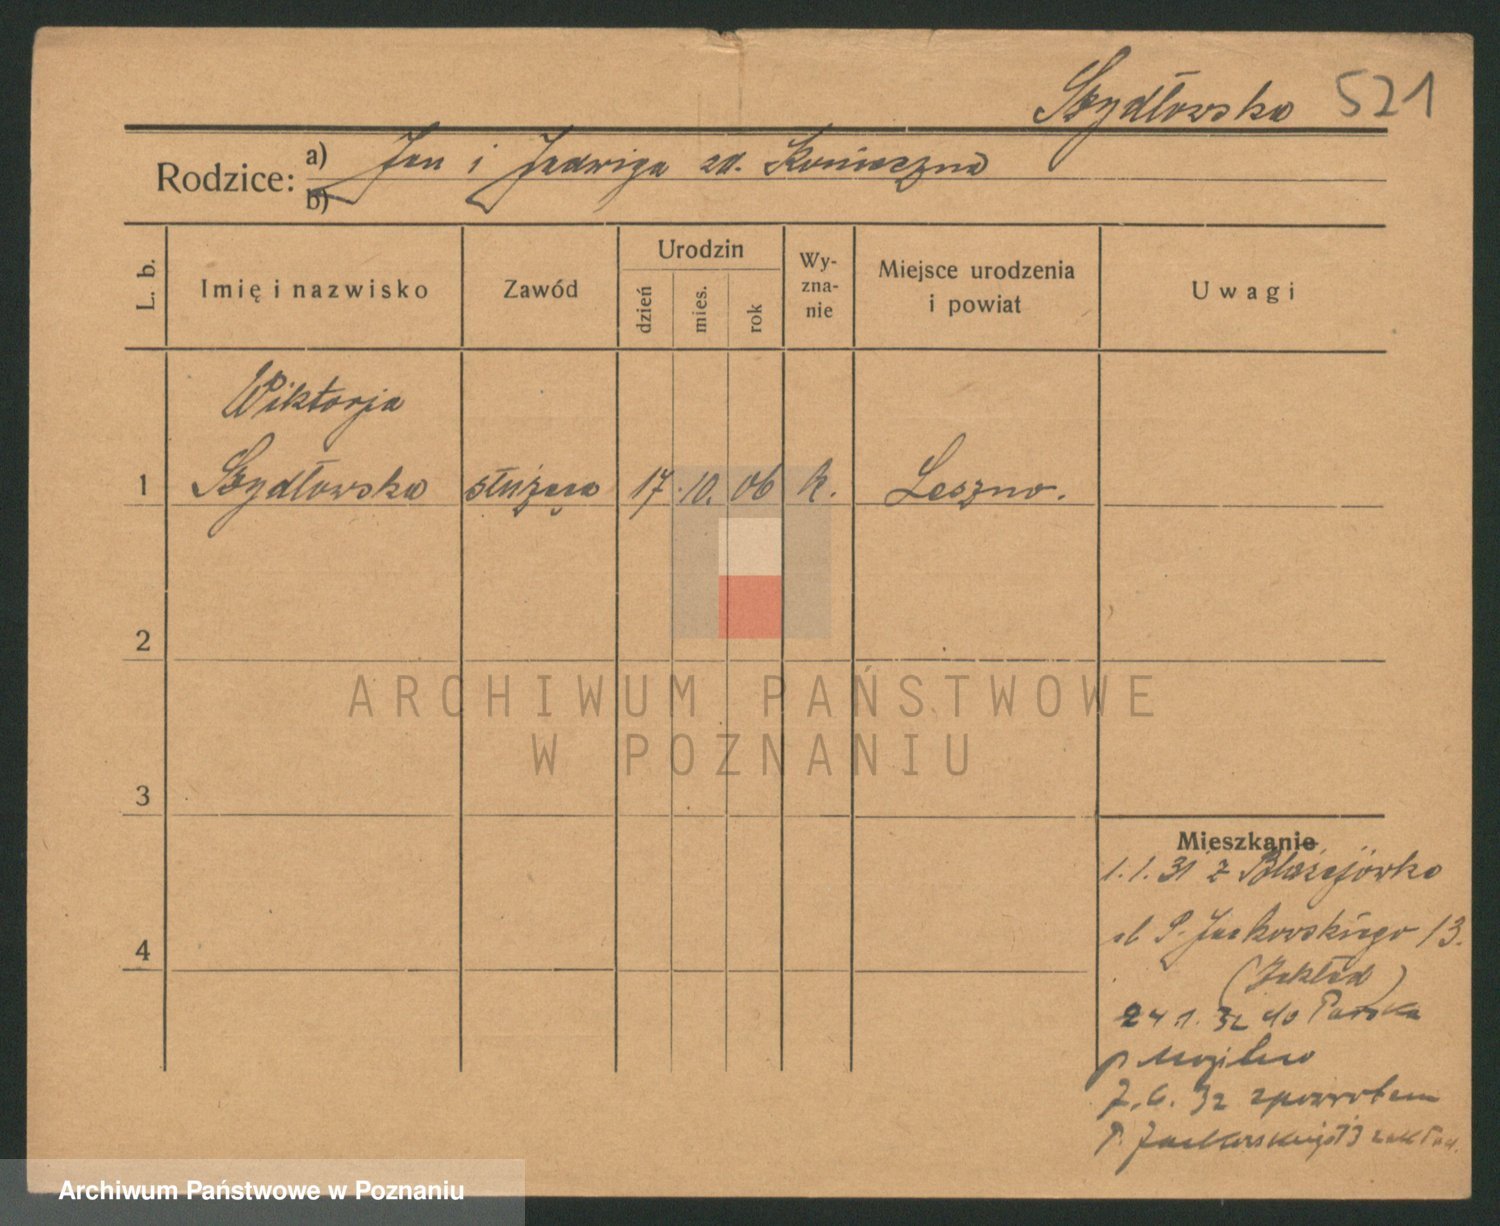 Szydłowska 521
Rodzice: a) Jan i Jadwiga zd. Konieczna
b)
L. b. Imię i nazwisko Zawód Urodzin dzień mies. rok Wy-zna-nie Miejsce urodzenia i powiat Uwagi
Wiktorja
1 Szydłowska służąca 17. 10. 06 k. Leszno.
2
ARCHIWUM PAŃSTWOWE
W POZNANIU
3
Mieszkanie
1.1.31 z Błażejówko
ul P. Jackowskiego 13.
4
(Zakład)
24 1. 32 do
p
7.6. 32 zpowrotem
P. Jackowskiego 13 zakład.
Archiwum Państwowe w Poznaniu